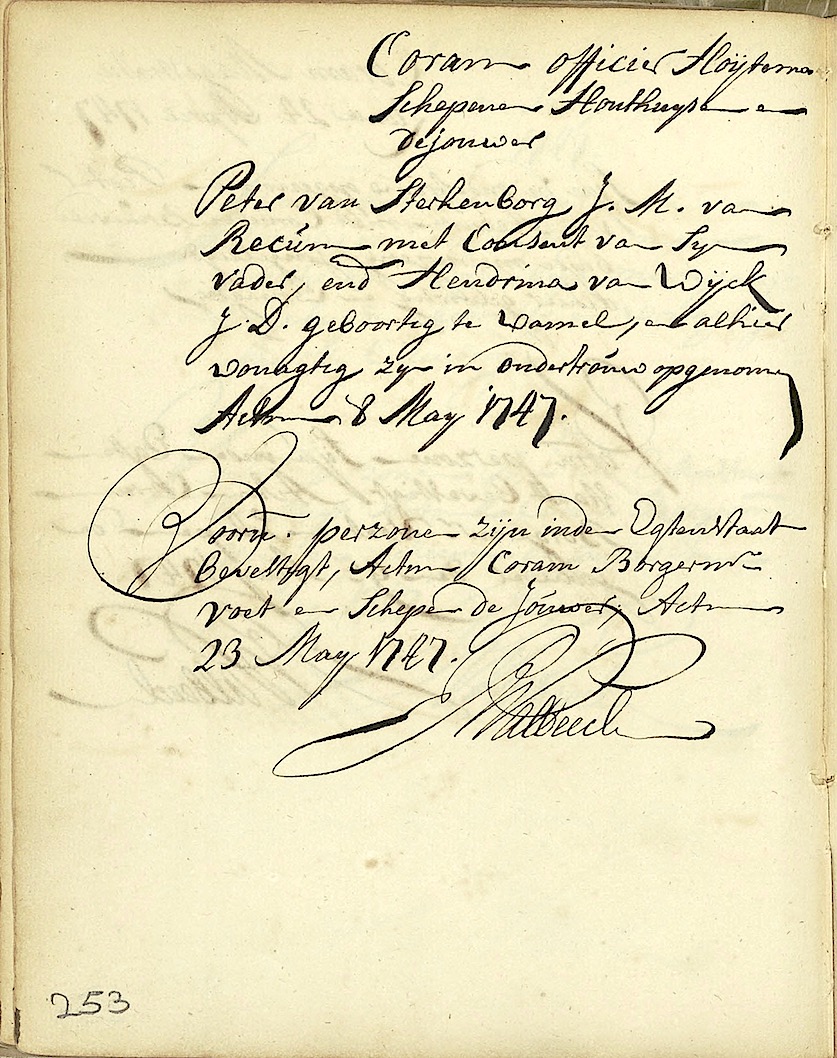 Coram officier Hoijtema
Schepenen Houthuyse en
de jouwer
Peter van Sterkenborg J. M. van
Recúm met Consent van Syn
vader, end Hendrina van Wijck
J. D. geboortig te wamel, en alhier
wonagtig zyn in ondertrouw opgenomen
Actum 8 May 1747.
Voorn. perzonen zijn inden Egtenstaat
bevestigt, Actum Coram Borgermr
voet en Schepen de Jouwer, Actum
23 May 1747.
253